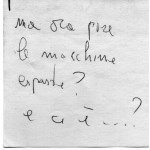 ma ora
le macchine
esposte?
e ci è ....?